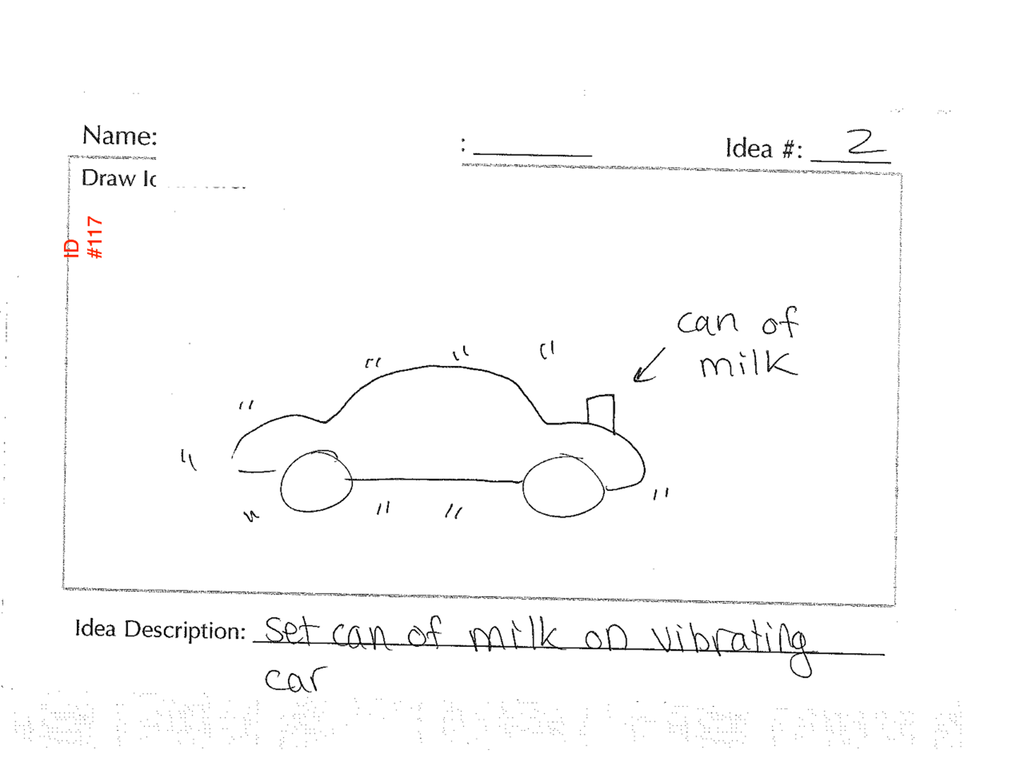 Name:
: Idea #: 2
Draw
ID
#117
can of
milk
Idea Description: set can of milk on vibrating
car